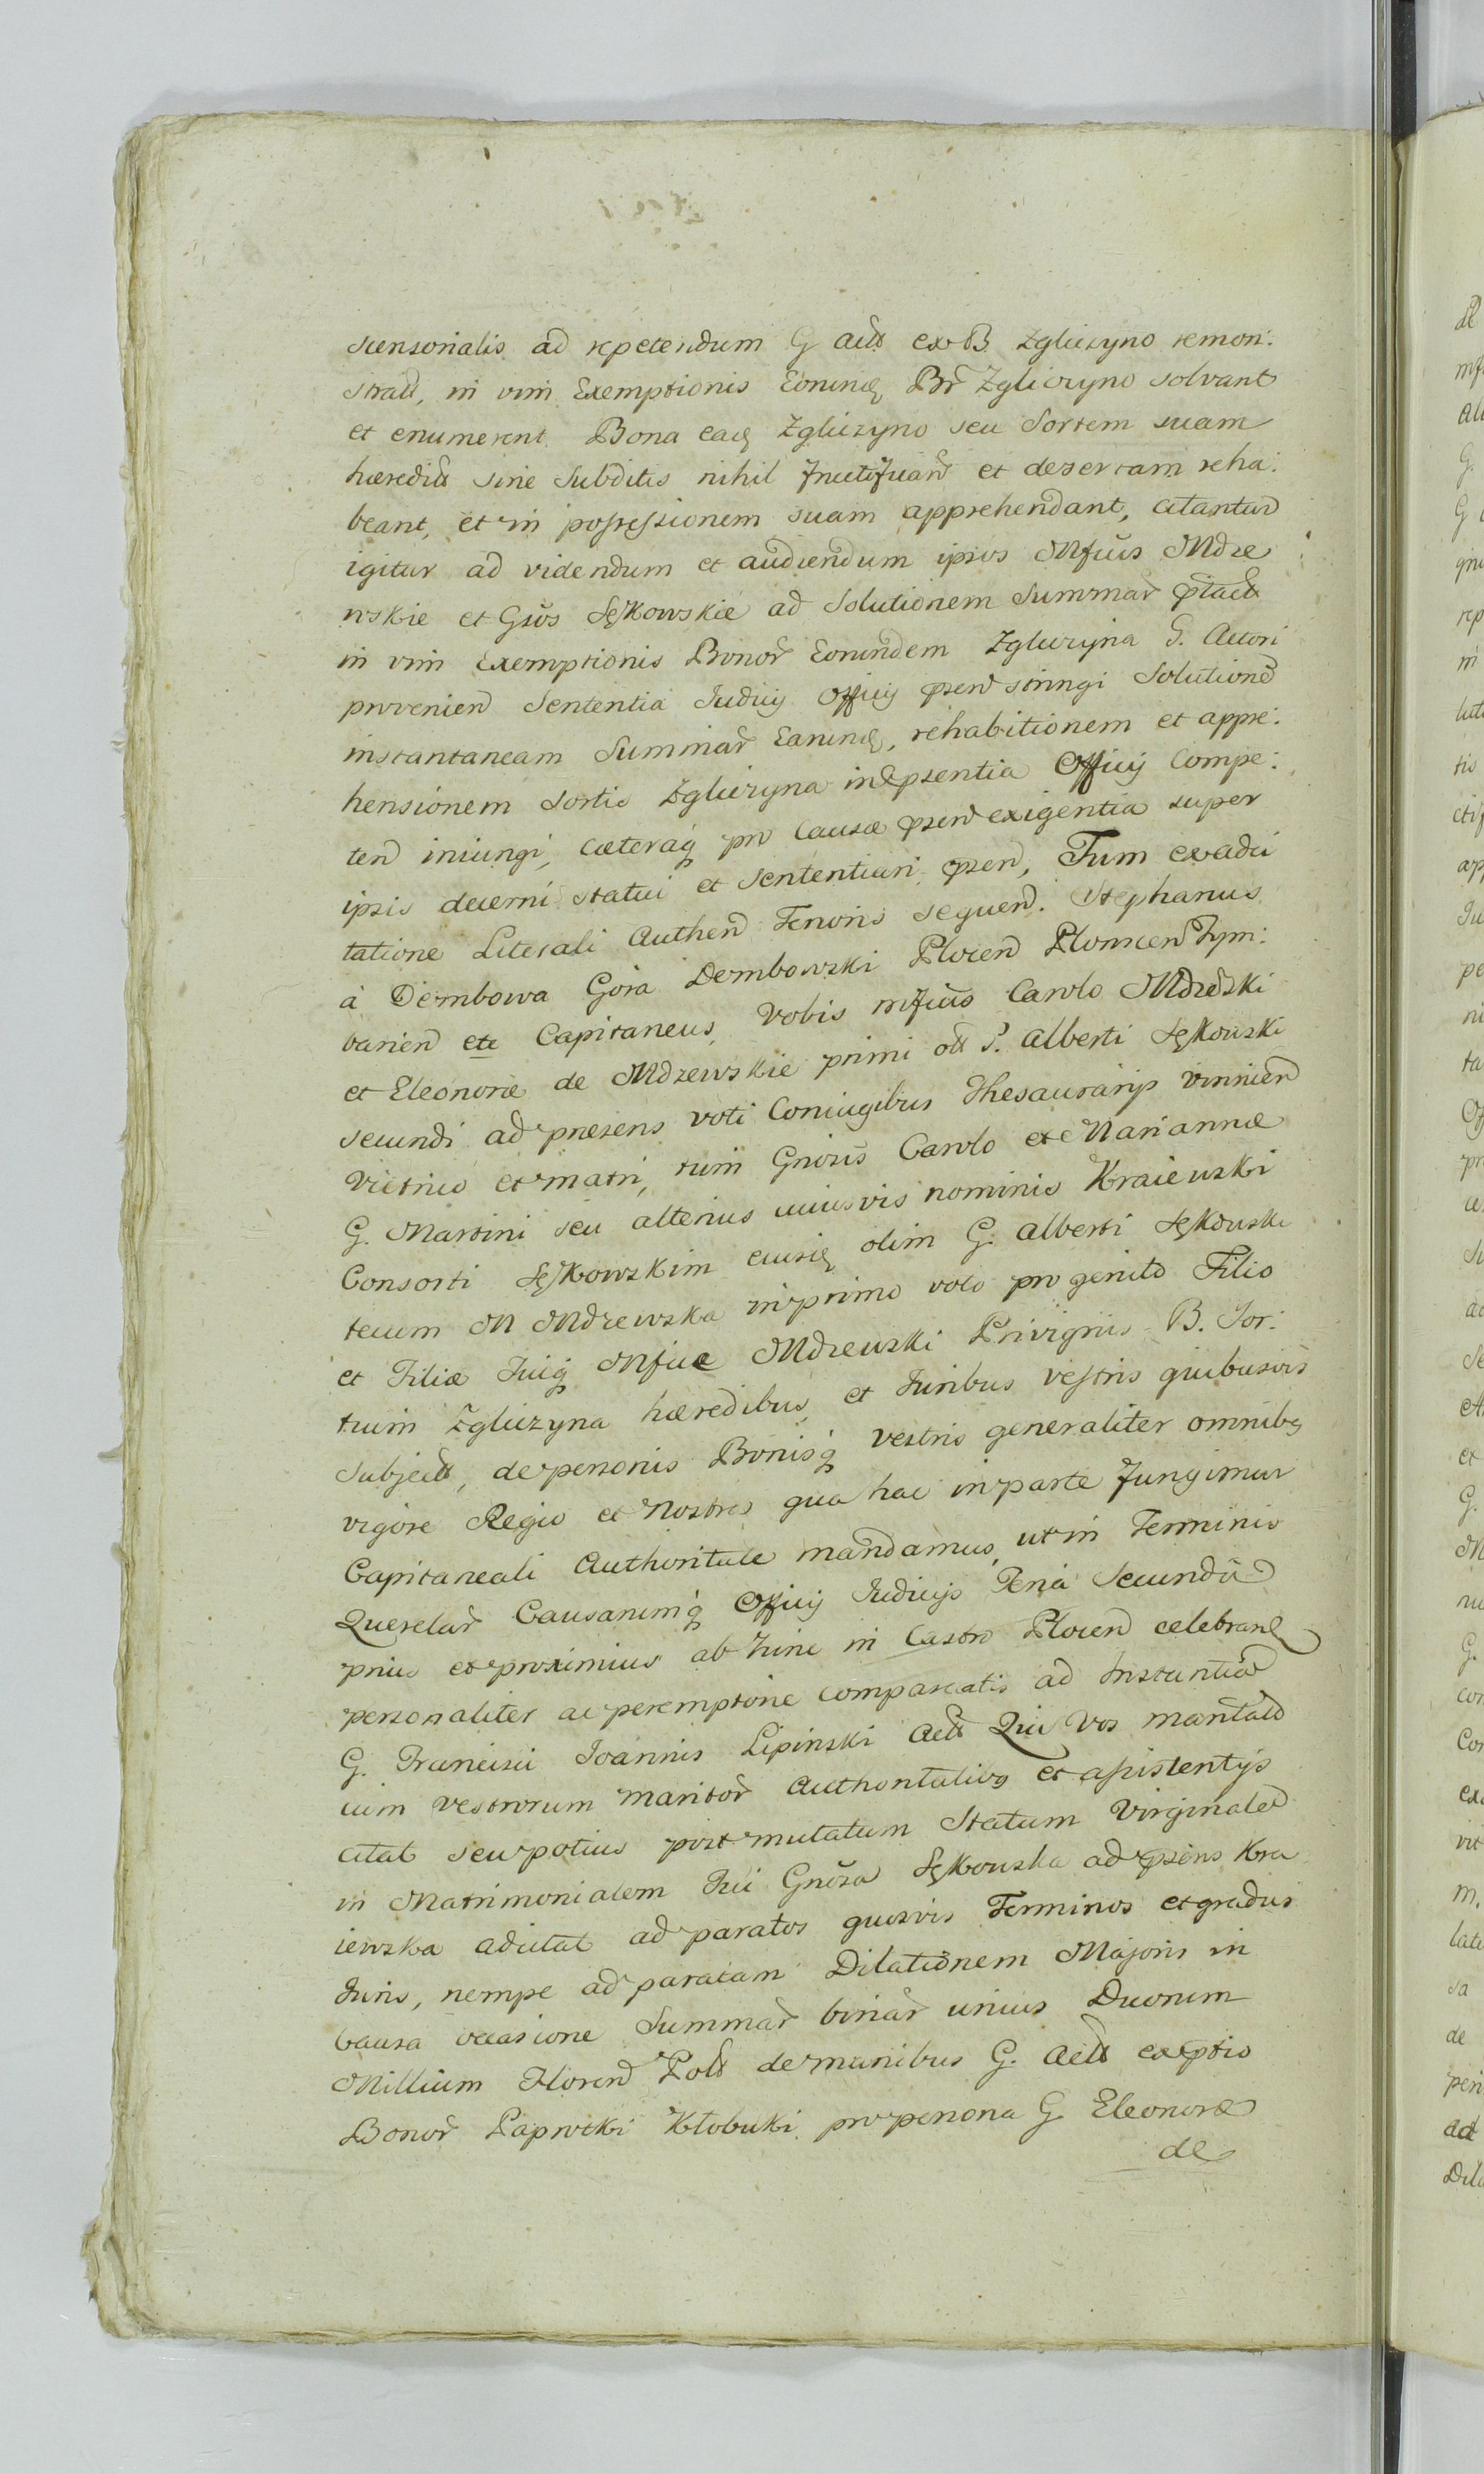 scensorialis ad repetendum G Actt ex B Zgliczyno remon:
stratt, in vim Exemptionis Eorundę Br Zgliczyno solvant
et enumerent Bona eadę Zgliczyno seu Sortem suam
hæreditt sine Subditis nihil fructifican et desertam reha:
beant, et in possessionem suam apprehendant, citantur
igitur ad videndum et audiendum ipsos Mfcus Mdze
wskie et Gsos Sękowskie ad Solutionem Summar ptact
in vim Exemptionis Bonor Eorundem Zgliczyna G. Actori
provenien Sententia Judicij Officij psen stringi Solutione
instantaneam Summar Earundę, rehabitionem et appre:
hensionem Sortis Zgliczyna in psentia Officij Compe:
ten iniungi, cæteraq pro Causæ psen exigentia super
ipsis decerni statui et Sententiari psen, Tum ex adci
tatione Literali Authen Tenoris sequen. Stephanus
à Dembowa Góra Dembowski Plocen Plonscen Zym:
varien etc Capitaneus, Vobis mfcus Carolo Mdzeski
et Eleonoræ de Mdzewskie primi ott S. Alberti Sękowski
secundi ad præsens voti Coniugibus Thesaurarijs Winnicen
Victrico et matri, tum Gnosus Carolo et Mariannæ
G. Martini seu alterius cuiusvis nominis Kraiewski
Consorti Sękowskim eiusdę olim G. Alberti Sękowski
tecum M Mdzewska in primo voto pro genito Filio
et Filiæ Tuiq Mfice Mdzewski Privignis B. Sor:
tium Zgliczyna hæredibus, et Juribus vestris quibusvis
subjectt, de personis Bonisq vestris generaliter omnibq
vigore Regio et Nostra qua hac in parte fungimur
Capitaneali Authoritate mandamus, ut in Terminis
Querelar Causarumq Officij Judicijs Feria Secunda
prius et proximius ab hinc in Castro Plocen celebran
personaliter ac peremptorie compareatis ad Instantia
G. Francisci Joannis Lipinski Actt Qui Vos maritale
cum vestrorum maritor authoritatibq et assistentijs
citat seu potius post mutatum Statum Virginale
in Matrimonialem Tui Gnosa Sękowska ad psens Kra
iewska adcitat ad paratos quosvis Terminos et gradus
Juris, nempe ad paratam Dilationem Majoris in
Causa occasione Summar binar unius Duorum
Millium Floren Poltt de manibus G. Actt ex eptio
Bonor Paprotki Kłobuki pro persona G Eleonoræ
de